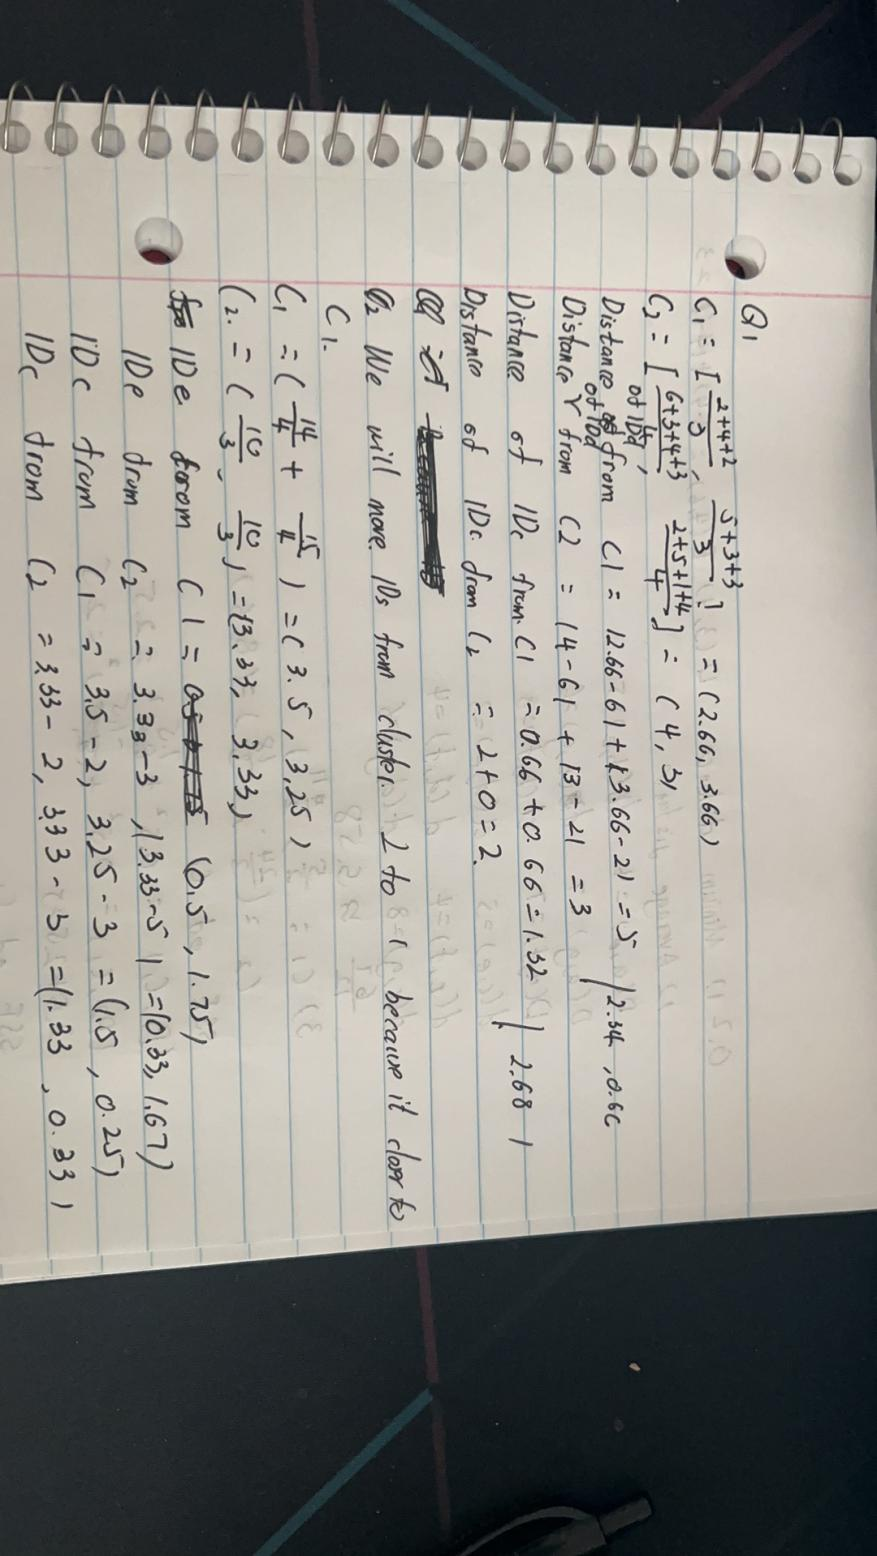 Q1
C1 = [ 2+4+2/3 , 5+3+3/3 ] = (2.66, 3.66)
C2 = [ 6+3+4+3/4 , 2+5+1+4/4 ] = (4, 3)
Distance of IDa from C1 = |2.66-6| + |3.66-2| = 5 / 2.34, 0.66
Distance of IDa from C2 = |4-6| + |3-2| = 3
Distance of IDc from C1 = 0.66 + 0.66 = 1.32 / 2.68 |
Distance of IDc from C2 = 2+0 = 2.
Q2 We will move IDs from cluster 2 to 1 because it closer to
C1.
C1 = ( 14/4 + 15/4 ) = ( 3.5, 3.25 )
C2. = ( 10/3 , 10/3 ) = (3.33, 3.33)
IDe from C1 = (0.5, 1.75)
IDe from C2 = 3.33-3, |3.33-5| = (0.33, 1.67)
IDc from C1 = 3.5-2, 3.25-3 = (1.5, 0.25)
IDc from C2 = 3.33-2, 3.33-3 = (1.33, 0.33)